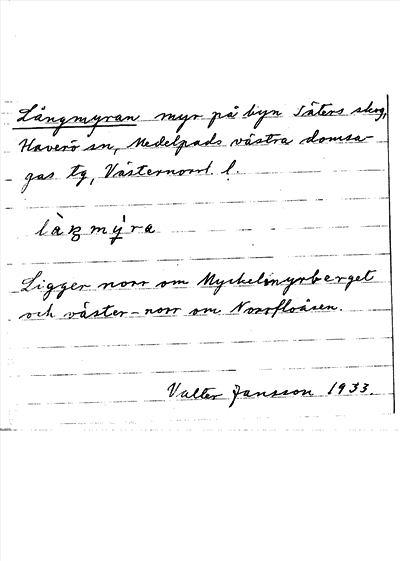 Långmyran myr på byn Säters skog,
Haverö sn, Medelpads västra domsa-
gas tg, Västernorrl. l.
làŋmy̆́ra
Ligger norr om Myckelmyrberget
och väster-norr om Norrfloåsen.
Valter Jansson 1933.